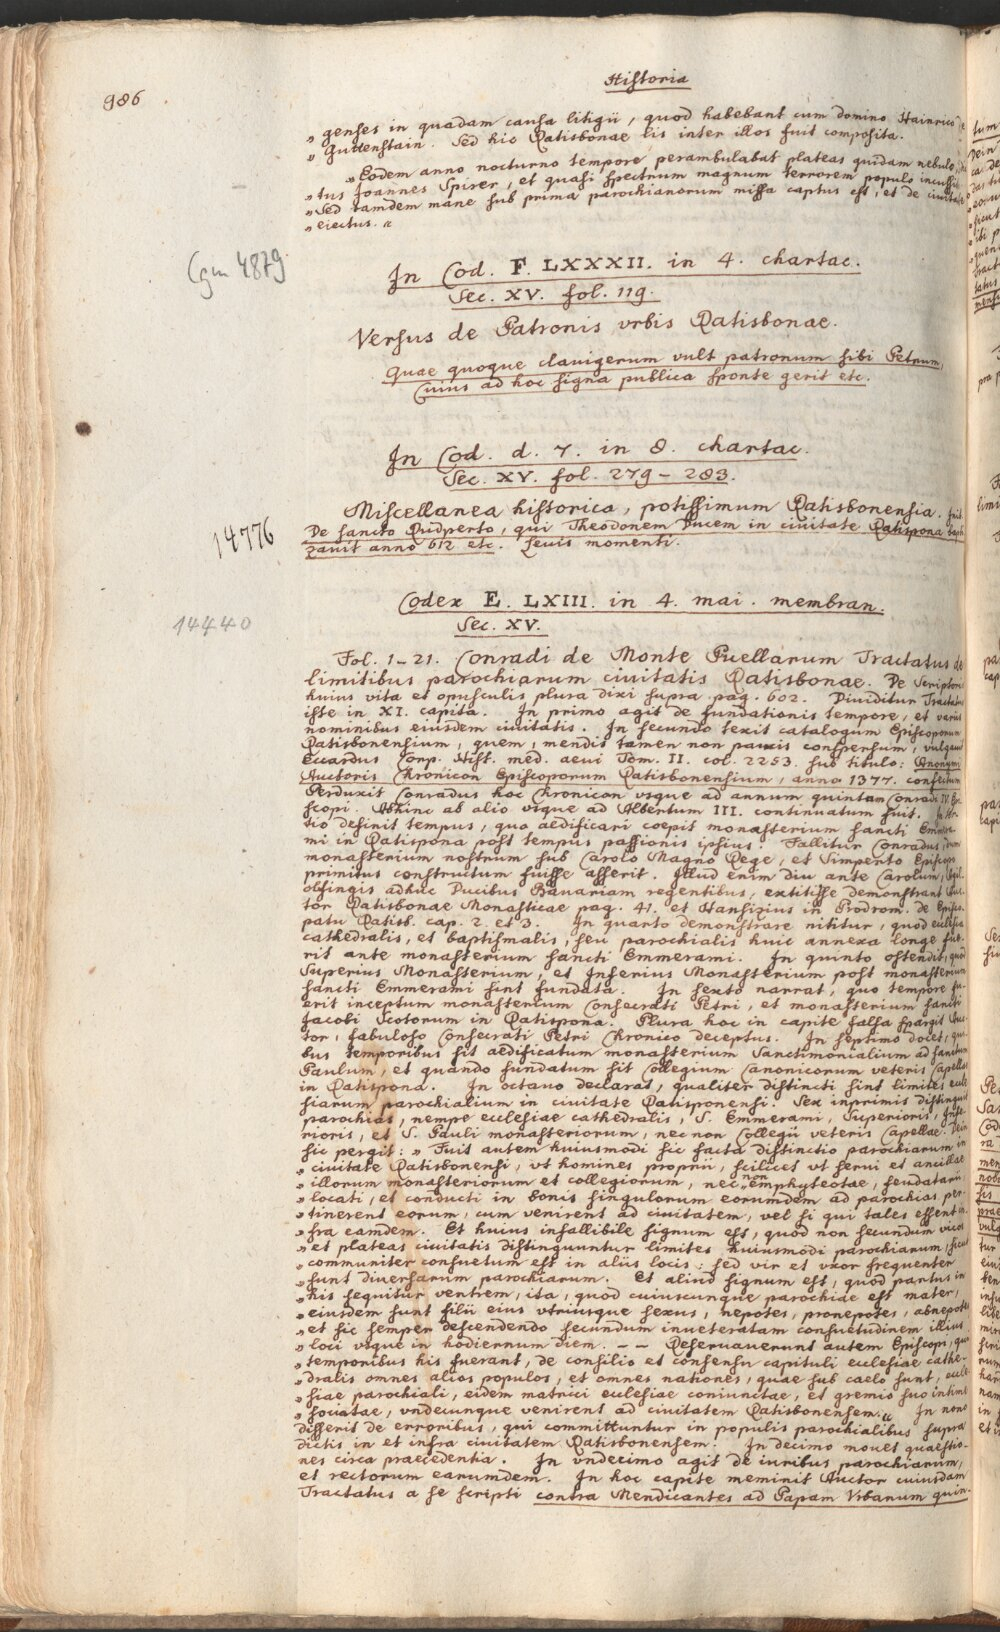 986
Historia
„ genses in quadam causa litigii, quod habebant cum domino Hainrico de
„ Guttenstain. Sed hic Ratisbonae lis inter illos fuit composita.
„Eodem anno nocturno tempore perambulabat plateas quidam nebulo,
„tus Joannes Spirer, et quasi spectrum magnum terrorem populo
„Sed tamdem mane sub prima parochianorum missa captus est, et de civitate
„eiectus.“
Cgm 4879
In Cod. F. LXXXII. in 4. chartac.
Sec. XV. fol. 119.
Versus de Patronis vrbis Ratisbonae.
Quae quoque clauigerum vult patronum sibi Petrum,
Cuius ad hoc signa publica sponte gerit etc.
In Cod. d. 7. in 8. chartac.
Sec. XV. fol. 279–283.
Miscellanea historica, potissimum Ratisbonensia. Init.
14776
De sancto Rudperto, qui Theodonem Ducem in civitate Ratispona bapti
zavit anno 612 etc. Levis momenti.
Codex E. LXIII. in 4. mai. membran.
Sec. XV.
14440
Fol. 1–21. Conradi de Monte Puellarum Tractatus de
limitibus parochiarum civitatis Ratisbonae. De Scriptoris
huius vita et opusculis plura dixi supra pag. 602. Dividitur Tractatus
iste in XI. capita. In primo agit de fundationis tempore, et variis
nominibus eiusdem civitatis. In secundo texit catalogum Episcoporum
Ratisbonensium, quem, mendis tamen non paucis conspersum, vulgavit
Eccardus Corp. Hist. med. aevi Tom. II. col. 2253. sub titulo: Anonymi
Auctoris Chronicon Episcoporum Ratisbonensium, anno 1377. confectum
Perduxit Conradus hoc Chronicon vsque ad annum quintum Conradi IV. Epi
scopi. Abhinc ab alio vsque ad Albertum III. continuatum fuit. In ter
tio definit tempus, quo aedificari coepit monasterium sancti Emmera
mi in Ratispona post tempus passionis ipsius. Fallitur Conradus, dum
monasterium nostrum sub Carolo Magno Rege, et Simperto Episcopo
primitus constructum fuisse asserit. Illud enim diu ante Carolum, Agil-
olfingis adhuc Ducibus Bavariam regentibus, extitisse demonstrant Auc-
tor Ratisbonae Monasticae pag. 41. et Hansizius in Prodrom. de Episco-
patu Ratisb. cap. 2. et 3. In quarto demonstrare nititur, quod ecclesia
cathedralis, et baptismalis, seu parochialis huic annexa longe fue-
rit ante monasterium sancti Emmerami. In quinto ostendit, quod
Superius Monasterium, et Inferius Monasterium post monasterium
sancti Emmerami sint fundata. In sexto narrat, quo tempore fu-
erit inceptum monasterium Consecrati Petri, et monasterium sancti
Jacobi Scotorum in Ratispona. Plura hoc in capite falsa spargit Auc-
tor, fabuloso Consecrati Petri Chronico deceptus. In septimo docet, qui
bus temporibus sit aedificatum monasterium Sanctimonialium ad sanctum
Paulum, et quando fundatum sit Collegium Canonicorum veteris Capellae
in Ratispona. In octavo declarat, qualiter distincti sint limites eccle
siarum parochialium in civitate Ratisponensi. Sex inprimis distinguit
parochias, nempe ecclesiae cathedralis, S. Emmerami, Superioris, Infe-
rioris, et S. Pauli monasteriorum, nec non Collegii veteris Capellae. Dein
sic pergit: „ Fuit autem huiusmodi sic facta distinctio parochiarum in
„ civitate Ratisbonensi, vt homines proprii, scilicet vt servi et ancillae
„ illorum monasteriorum et collegiorum, nec non emphyteotae, feudatarii
„ locati, et conducti in bonis singulorum eorumdem ad parochias per-
„ tinerent eorum, cum venirent ad civitatem, vel si qui tales essent in-
„ fra eamdem. Et huius infallibile signum est, quod non secundum vicos
„ et plateas civitatis distinguuntur limites huiusmodi parochiarum, sicut
„ communiter consuetum est in aliis locis: sed vir et vxor frequenter
„ sunt diversarum parochiarum. Et aliud signum est, quod partus in
„ his sequitur ventrem, ita, quod cuiuscunque parochiae est mater,
„ eiusdem sunt filii eius vtriusque sexus, nepotes, pronepotes, abnepotes
„ et sic semper descendendo secundum inveteratam consuetudinem illius
„ loci vsque in hodiernum diem. – – Reservaverunt autem Episcopi, qui
„ temporibus his fuerant, de consilio et consensu capituli ecclesiae cathe-
„ dralis omnes alios populos, et omnes nationes, quae sub caelo sunt, eccle
„ siae parochiali, eidem matrici ecclesiae coniunctae, et gremio suo intime
„ sociatae, vndecunque venirent ad civitatem Ratisbonensem.“ In nono
disserit de erroribus, qui committuntur in populis parochialibus supra
dictis in et infra civitatem Ratisbonensem. In decimo movet quaestio-
nes circa praecedentia. In vndecimo agit de iuribus parochiarum,
et rectorum earumdem. In hoc capite meminit Auctor cuiusdam
Tractatus a se scripti contra Mendicantes ad Papam Vrbanum quin-